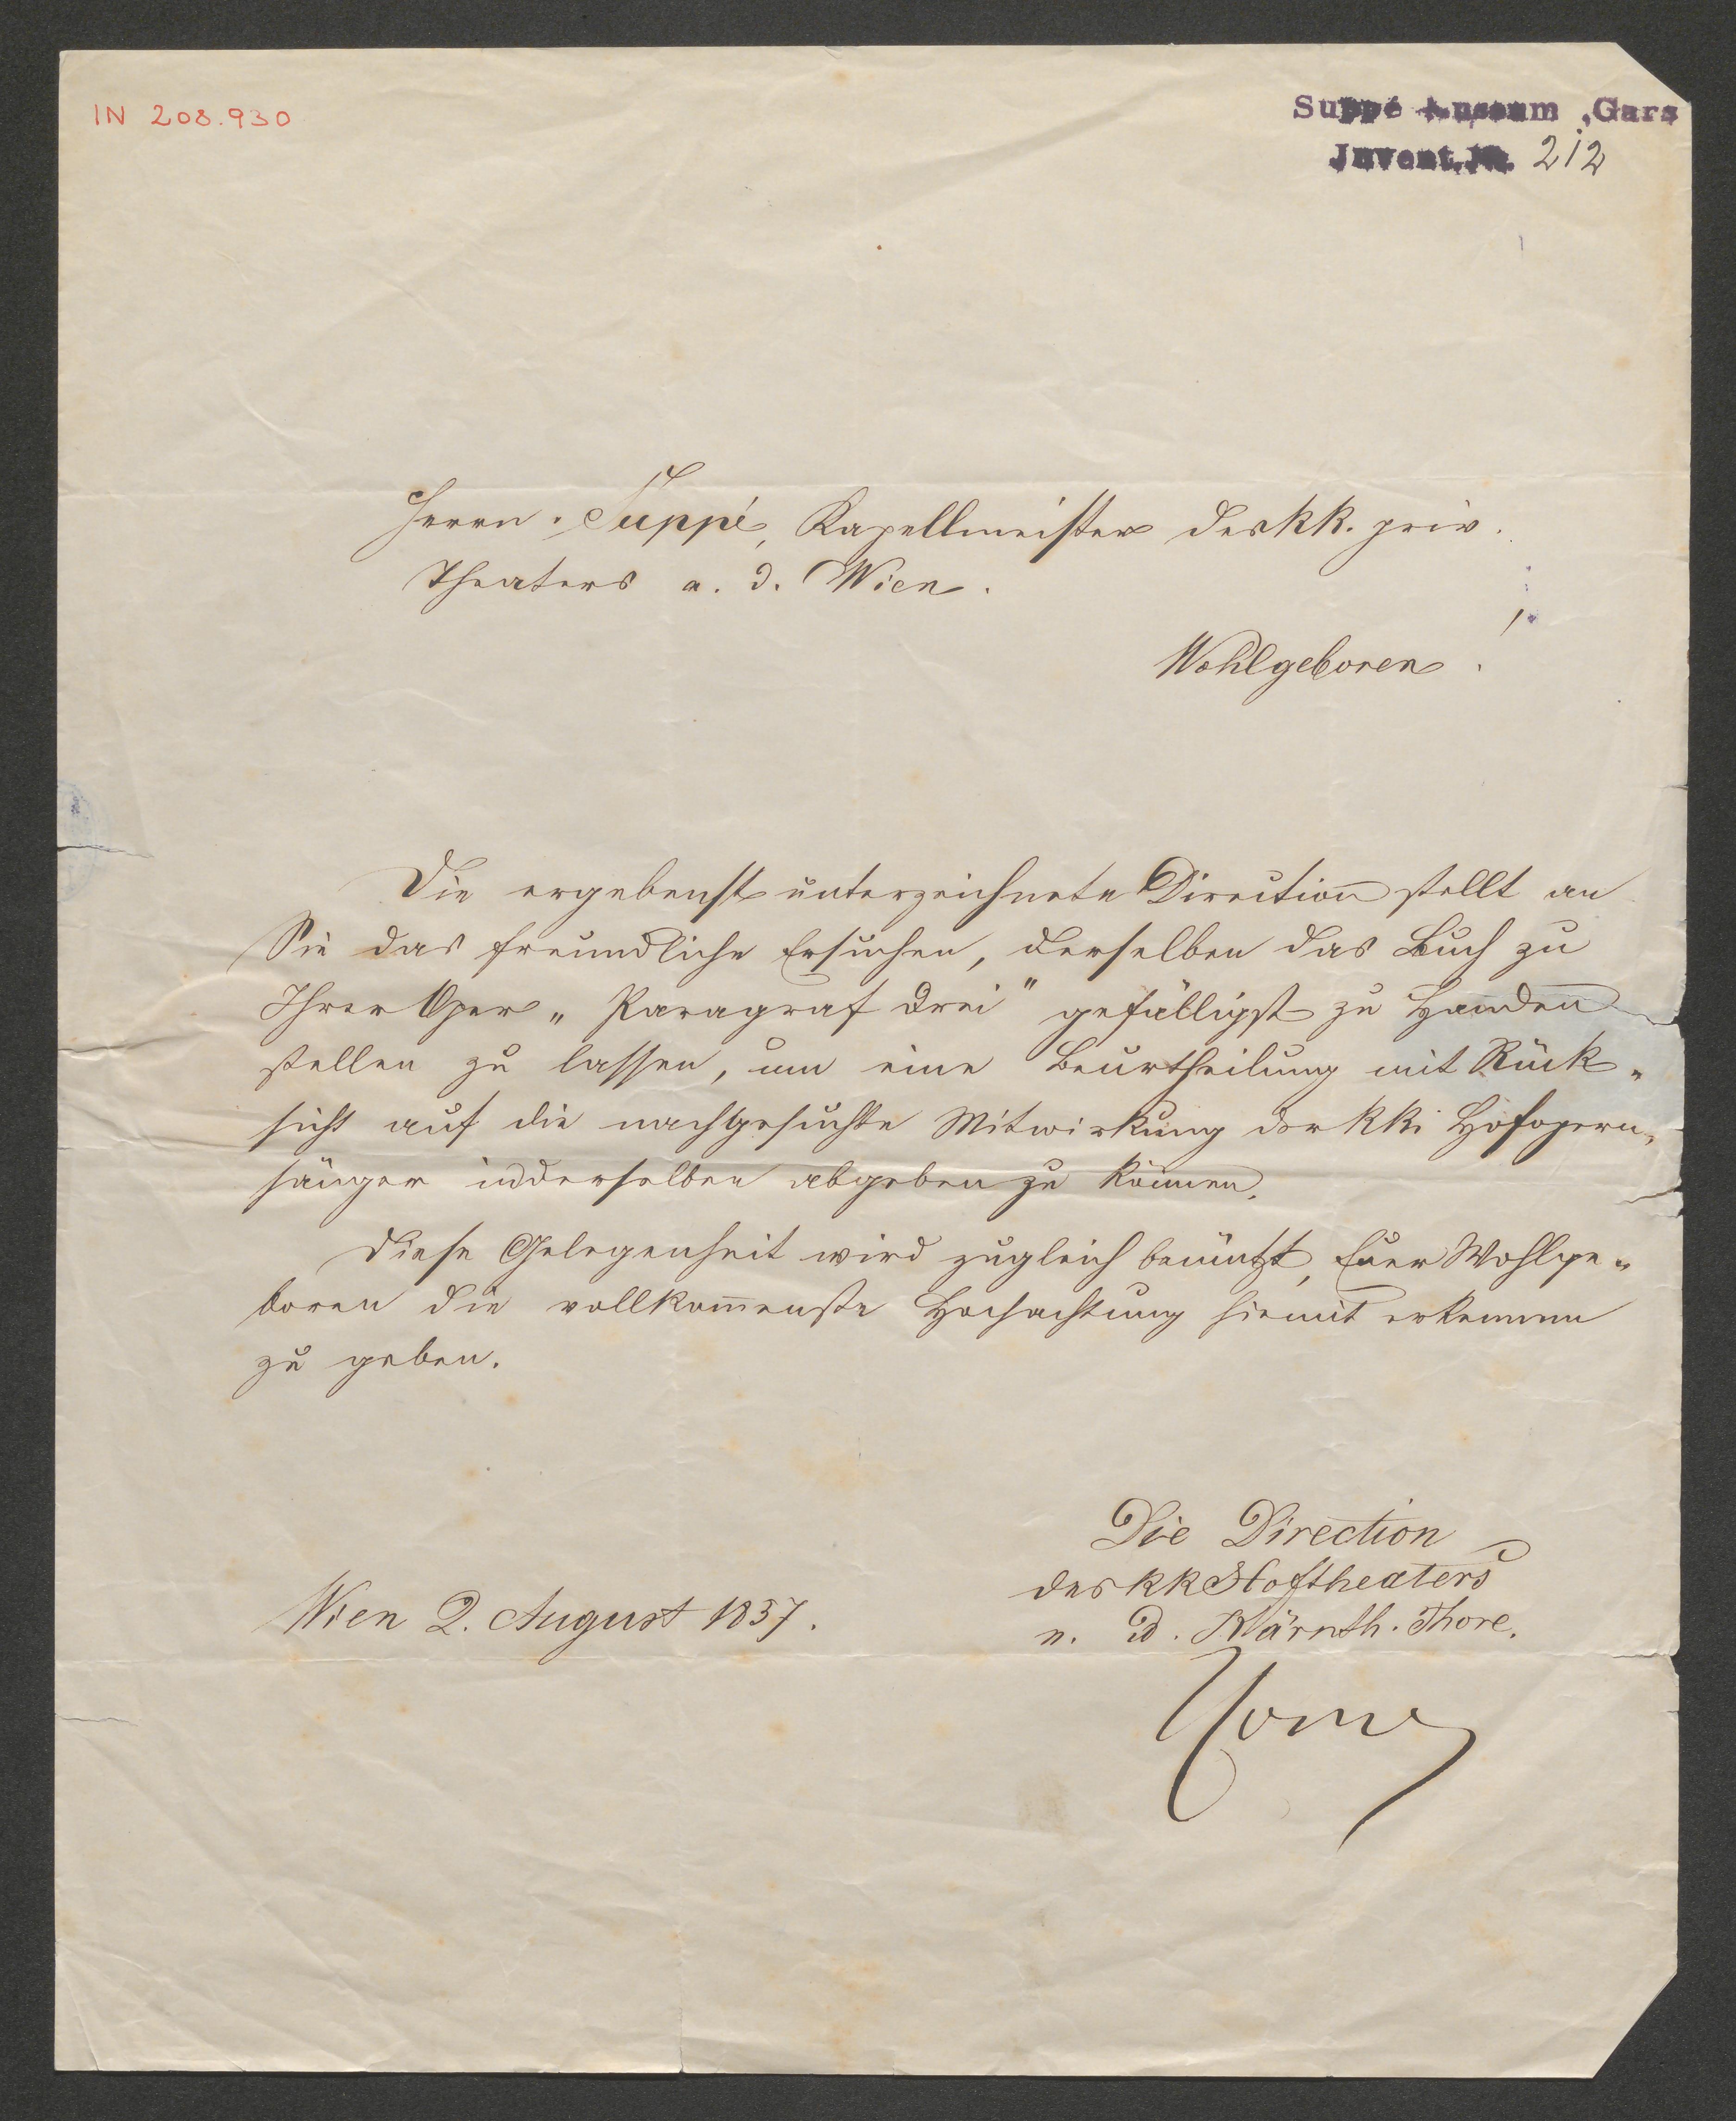 IN 208.930
Suppé Museum, Gars
Invent. Nr. 212
Herrn. Suppé, Kapellmeister des kk. priv.
Theaters a. d. Wien.
Wohlgeboren!
Die ergebenst unterzeichnete Direction stellt an
Sie das freundliche Ersuchen, derselben das Buch zu
Ihrer Oper „Paragraf drei" gefälligst zu Handen
stellen zu lassen, um eine Beurtheilung mit Rück„
sicht auf die nachgesuchte Mitwirkung der kk. Hofopern„
sänger in derselben abgeben zu können.
Diese Gelegenheit wird zugleich benützt, Euer Wohlge„
boren die vollkom̅enste Hochachtung hiemit erkennen
zu geben.
Die Direction
des kk Hoftheaters
n. d. Kärnth. Thore.
Wien 2. August 1857.